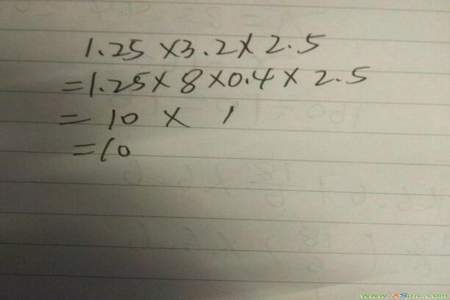 1.25×3.2×2.5
=1.25×8×0.4×2.5
=10×1
=10